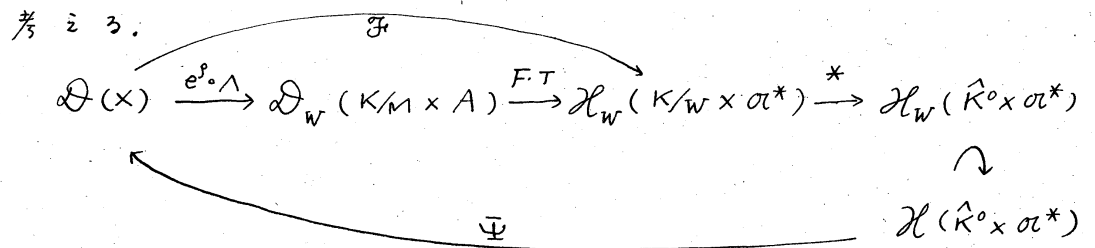 考える.
ℱ
𝒟(X) e^ρ∘Λ → 𝒟_W(K/M × A) F.T → ℋ_W(K/W × 𝔞*) * → ℋ_W(K̂⁰ × 𝔞*)
∩
Ψ̄ ℋ(K̂⁰ × 𝔞*)